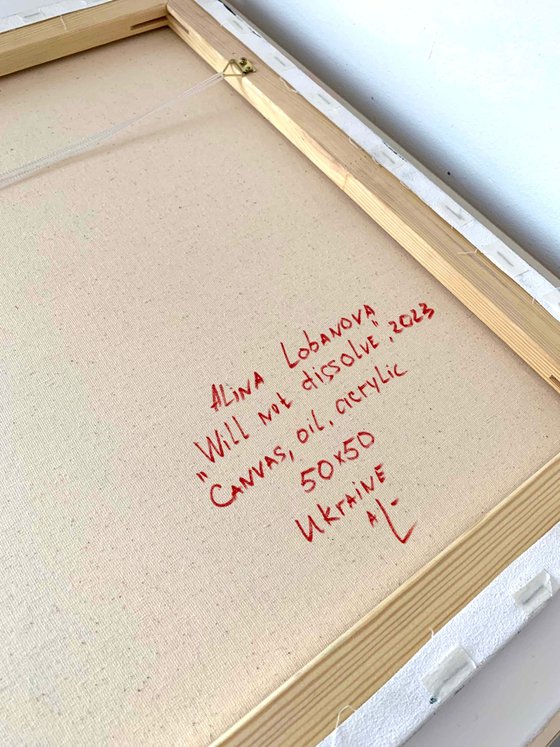 Alina Lobanova
"Will not dissolve", 2023
Canvas, oil, acrylic
50x50
Ukraine
AL